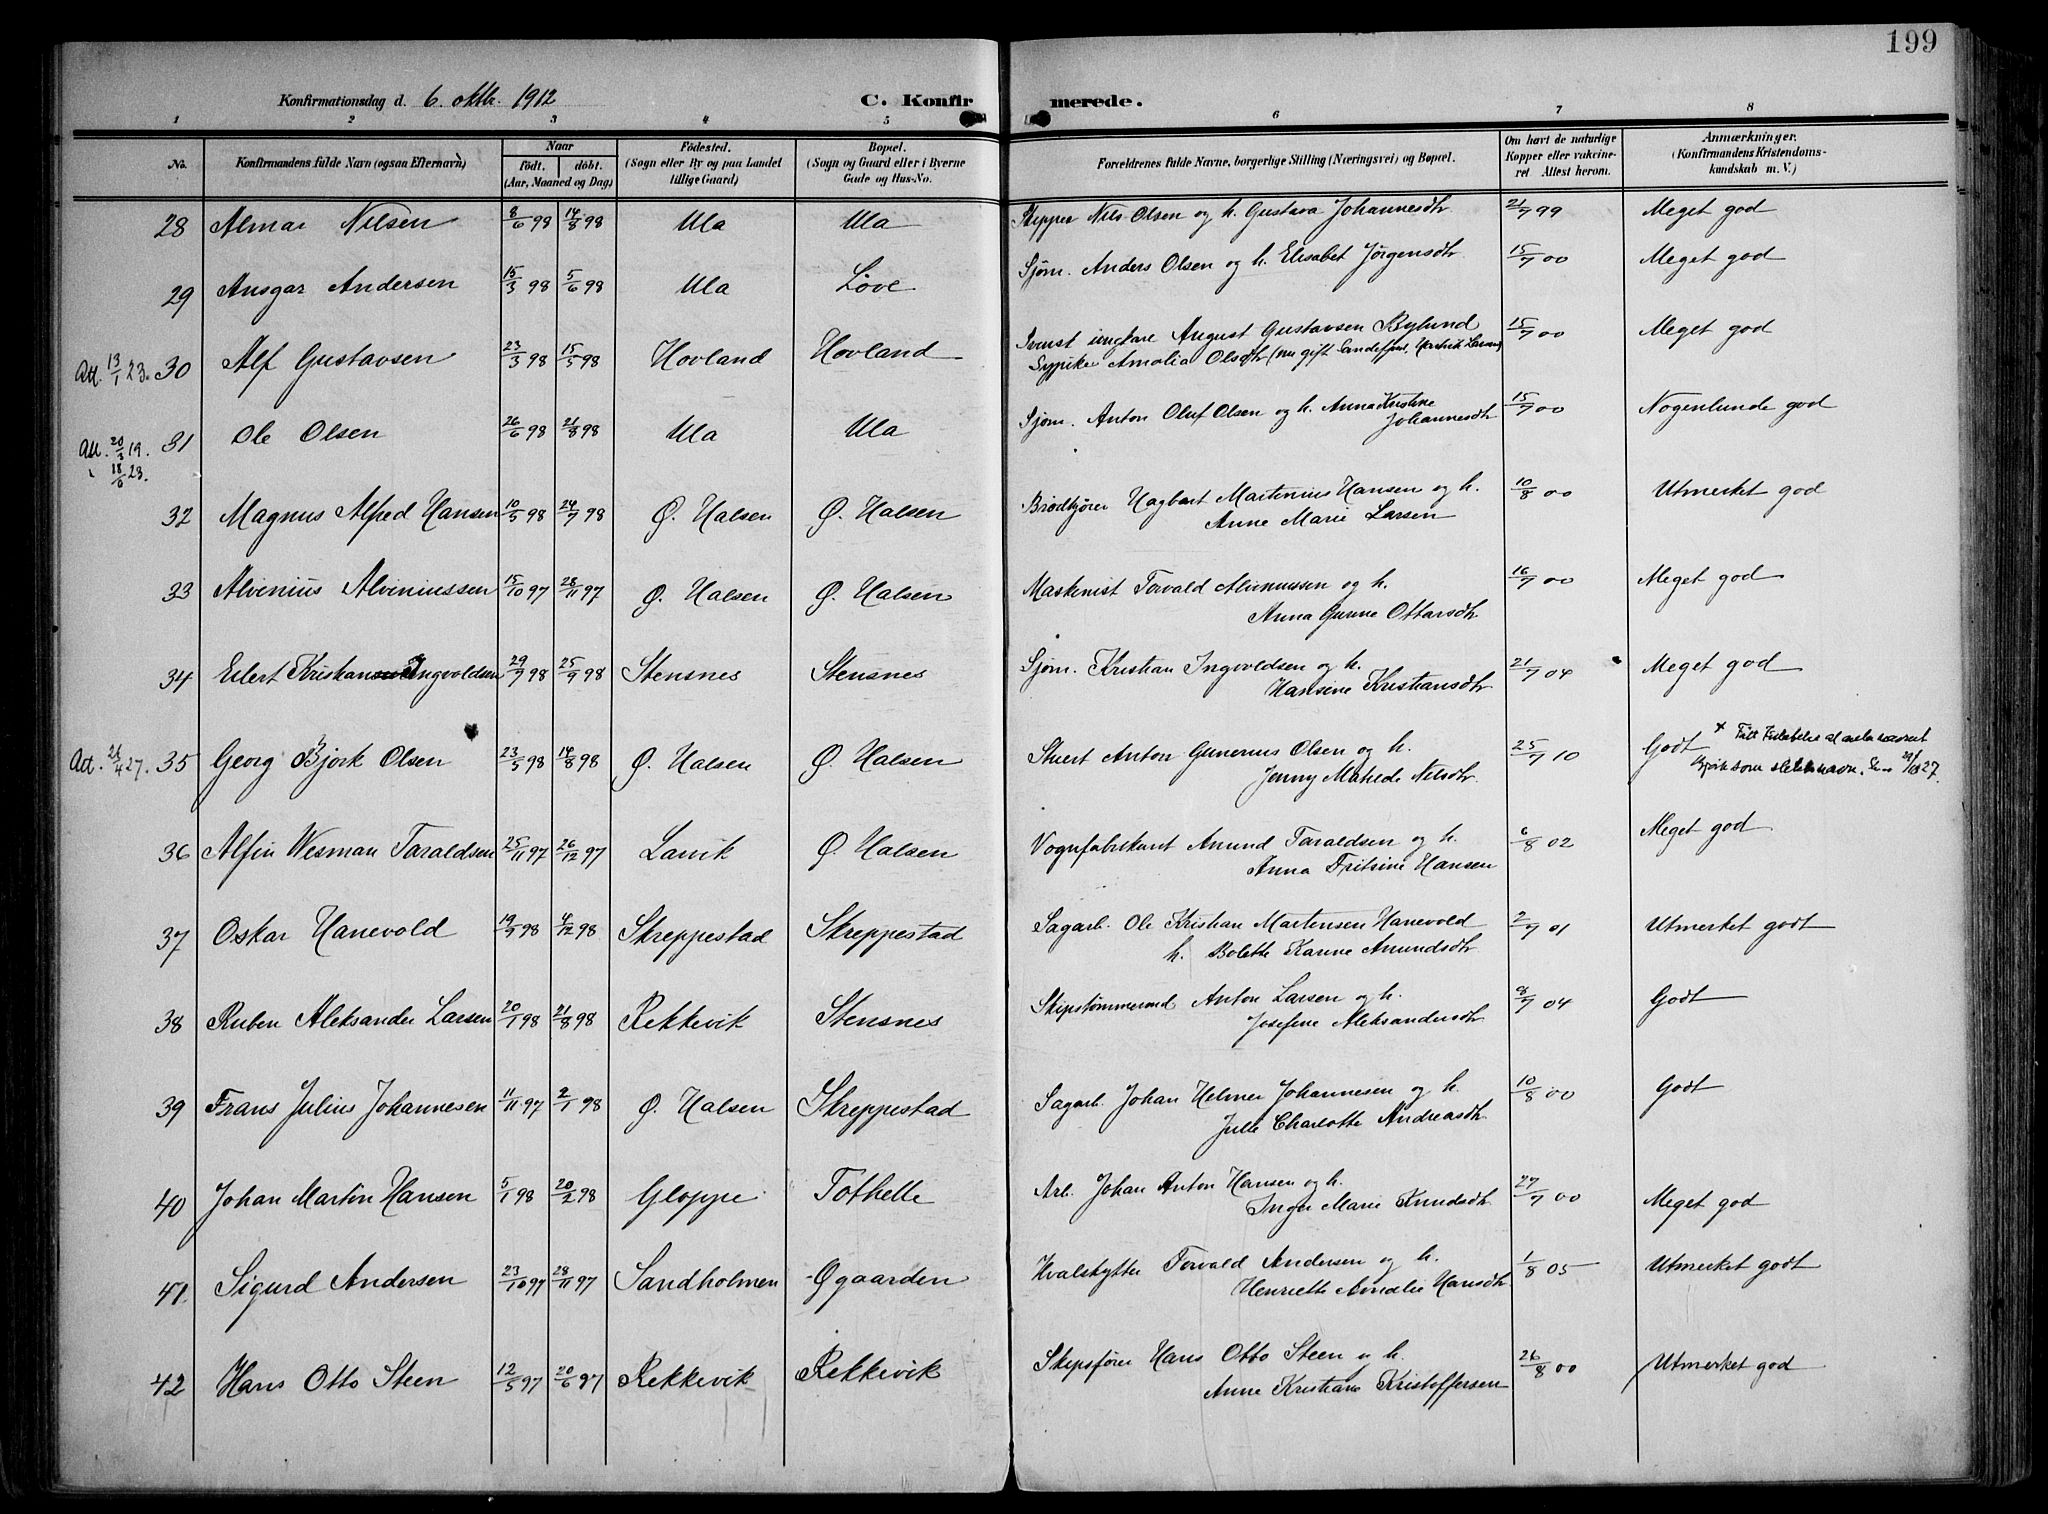 199
Konfirmationsdag d. 6. oktbr. 1912 C. Konfirmerede.
1 2 3 4 5 6 7 8
No. Konfirmandens fulde Navn (ogsaa Efternavn) Naar Födt. döbt. (Aar, Maaned og Dag) Födested. (Sogn eller By og paa Landet tillige Gaard) Bopæl. (Sogn og Gaard eller i Byerne Gade og Hus-No. Forældrenes fulde Navne, borgerlige Stilling (Næringsvei) og Bopæl. Om havt de naturlige Kopper eller vakcineret Attest herom. Anmærkninger. (Konfirmandens Kristendomskundskab m. V.)
28 Almar Nilsen 8/6 98 14/8 98 Ula Ula Skipper Nils Olsen og h. Gustava Johannesdtr 21/7 99 Meget god
29 Ansgar Andersen 15/3 98 5/6 98 Ula Löve Sjøm. Anders Olsen og h. Elisabet Jørgensdtr 15/7 00 Meget god
Att. 13/1 23. 30 Alf Gustavsen 23/3 98 15/5 98 Hovland Hovland August Gustavsen Bylund 15/7 00 Meget god
Sypike Amalia Olsdtr (nu gift Sandefjord,
31 Ole Olsen 26/6 98 21/8 98 Ula Ula Sjøm. Anton Oluf Olsen og h. Anna Kristine Johannesdtr 15/7 00 Nogenlunde god
Att. 20/3 19.
" 18/6 23.
32 Magnus Alfred Hansen 10/5 98 24/7 98 Ø. Halsen Ø. Halsen Brödkjører Hagbart Martinius Hansen og h. 10/8 00 Utmerket god
Anne Marie Larsen
33 Alvinius Alviniussen 15/10 97 28/11 97 Ø. Halsen Ø. Halsen Maskinist Torvald Alviniussen og h. 16/7 00 Meget god
Anna Gunne Ottarsdtr
34 Eilert Kristian Ingvoldsen 29/7 98 25/9 98 Stensnes Stensnes Sjøm. Kristian Ingvoldsen og h. 21/7 04 Meget god
Hansine Kristiansdtr
Att. 26/4 27. 35 Georg Bjørk Olsen 23/5 98 14/8 98 Ø. Halsen Ø. Halsen Stuert Anton Gunerius Olsen og h. 25/7 10 Godt
Jenny Matilde Nilsdtr. Bjørk som slektsnavn.
36 Alfin Wesman Taraldsen 25/11 97 26/12 97 Larvik Ø. Halsen Vognfabrikant Amund Taraldsen og h. 6/8 02 Meget god
Anna Fritsine Hansen
37 Oskar Hanevold 19/9 98 4/12 98 Skreppestad Skreppestad Sagarb. Ole Kristian Martinsen Hanevold 2/7 01 Utmerket godt
h. Bolette Karine Amundsdtr
38 Ruben Aleksander Larsen 20/1 98 21/8 98 Rekkevik Stensnes Skipstømmermd Anton Larsen og h. 8/7 04 Godt
Josefine Aleksandersdtr
39 Frans Julius Johannesen 11/11 97 2/1 98 Ø. Halsen Skreppestad Sagarb. Johan Helmer Johannesen og h. 10/8 00 Godt
Julie Charlotte Andreasdtr
40 Johan Martin Hansen 5/1 98 20/2 98 Gloppe Tothelle Arb. Johan Anton Hansen og h. 27/7 00 Meget god
Inger Marie Knudsdtr
41 Sigurd Andersen 23/10 97 28/11 97 Sandholmen Øgaarden Hvalskytter Torvald Andersen og h. 1/8 05 Utmerket godt
Henriette Amalie Hansdtr
42 Hans Otto Steen 12/5 97 20/6 97 Rekkevik Rekkevik Skipsfører Hans Otto Steen u h. 26/8 00 Utmerket god
Anne Kristiane Kristoffersen